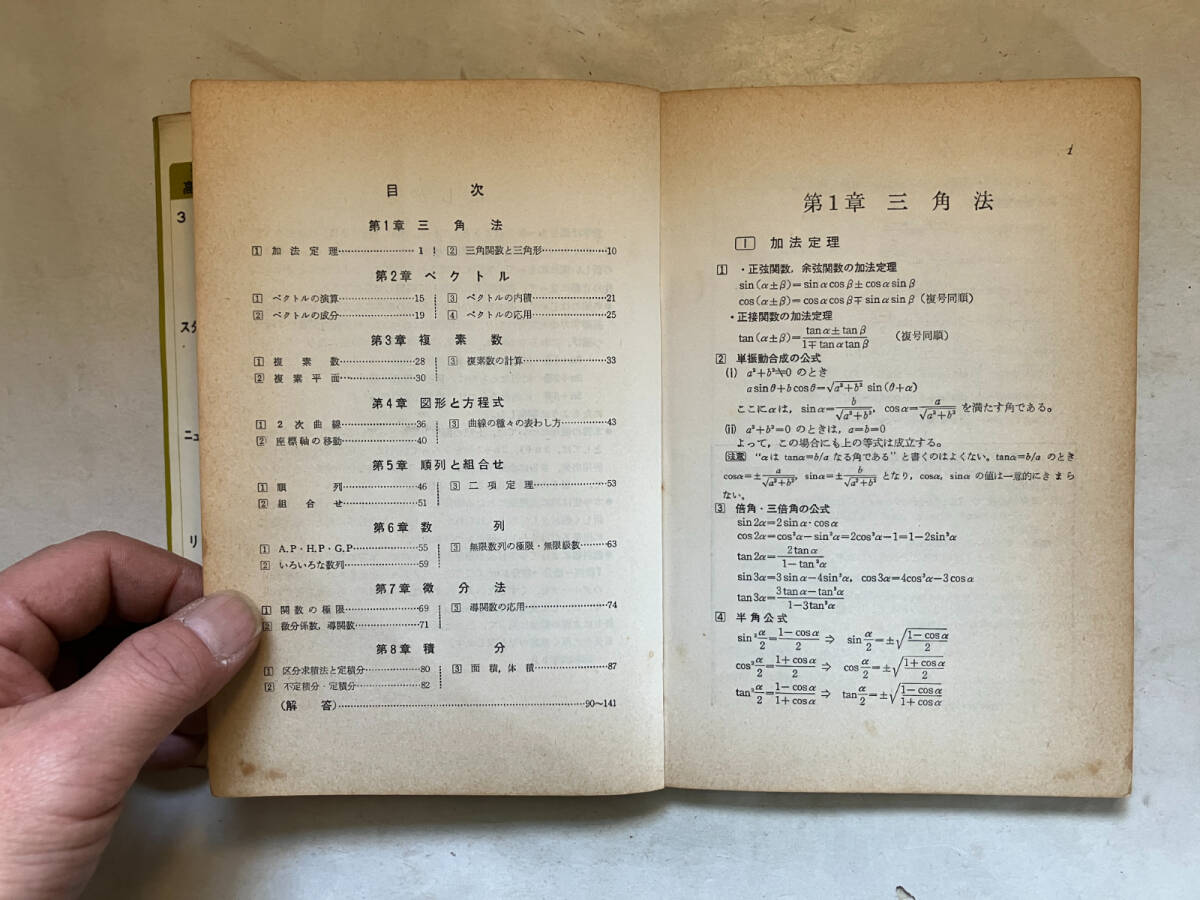 目 次
第1章 三角法
1 加法定理……………………1
2 三角関数と三角形……………………10
第2章 ベクトル
1 ベクトルの演算……………………15
3 ベクトルの内積……………………21
2 ベクトルの成分……………………19
4 ベクトルの応用……………………25
第3章 複素数
1 複素数……………………28
3 複素数の計算……………………33
2 複素平面……………………30
第4章 図形と方程式
1 2次曲線……………………36
3 曲線の種々の表わし方……………………43
2 座標軸の移動……………………40
第5章 順列と組合せ
1 順列……………………46
3 二項定理……………………53
2 組合せ……………………51
第6章 数列
1 A.P・H.P・G.P……………………55
3 無限数列の極限・無限級数……………………63
2 いろいろな数列……………………59
第7章 微分法
1 関数の極限……………………69
3 導関数の応用……………………74
2 微分係数,導関数……………………71
第8章 積分
1 区分求積法と定積分……………………80
3 面積,体積……………………87
2 不定積分・定積分……………………82
(解答)……………………90〜141
3
スタ
ニュ
リ
1
第1章 三角法
1 加法定理
1 ・正弦関数,余弦関数の加法定理
sin(α±β)=sinαcosβ±cosαsinβ
cos(α±β)=cosαcosβ∓sinαsinβ(複号同順)
・正接関数の加法定理
tan(α±β)=(tanα±tanβ)/(1∓tanαtanβ) (複号同順)
2 単振動合成の公式
(i) a²+b²≠0 のとき
a sinθ+b cosθ=√(a²+b²) sin(θ+α)
ここにαは, sinα=b/√(a²+b²), cosα=a/√(a²+b²) を満たす角である。
(ii) a²+b²=0 のときは, a=b=0
よって,この場合にも上の等式は成立する。
注意 “αは tanα=b/a なる角である” と書くのはよくない。tanα=b/a のとき
cosα=±a/√(a²+b²), sinα=±b/√(a²+b²) となり, cosα, sinα の値は一意的にきまら
ない。
3 倍角・三倍角の公式
sin2α=2sinα·cosα
cos2α=cos²α−sin²α=2cos²α−1=1−2sin²α
tan2α=2tanα/(1−tan²α)
sin3α=3sinα−4sin³α, cos3α=4cos³α−3cosα
tan3α=(3tanα−tan³α)/(1−3tan²α)
4 半角公式
sin²α/2=(1−cosα)/2 ⇒ sinα/2=±√((1−cosα)/2)
cos²α/2=(1+cosα)/2 ⇒ cosα/2=±√((1+cosα)/2)
tan²α/2=(1−cosα)/(1+cosα) ⇒ tanα/2=±√((1−cosα)/(1+cosα))